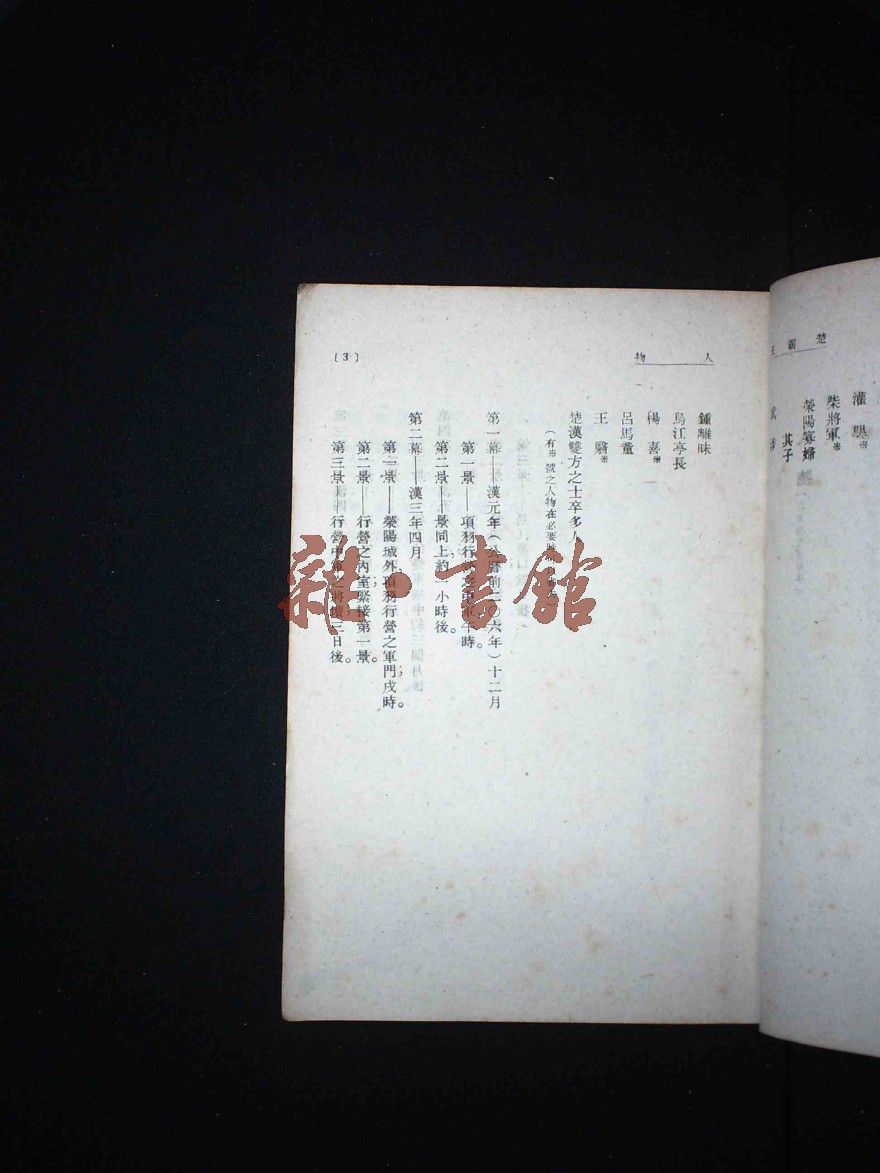 楚霸王
灌嬰※
柴將軍※
滎陽寡婦
其子
武涉
人物
鍾離昧
烏江亭長
楊喜※
呂馬童
王翳※
楚漢雙方之士卒多人
(有※號之人物在必要時
第一幕——漢元年(公曆前二〇六年)十二月
第一景——項羽行營之軍 午時。
第二景——景同上約一小時後。
第二幕——漢三年四月
第一景——滎陽城外項羽行營之軍門;戌時。
第二景——行營之內室;緊接第一景。
第三景——行營中軍之將壇;三日後。
(3)
雜·書館